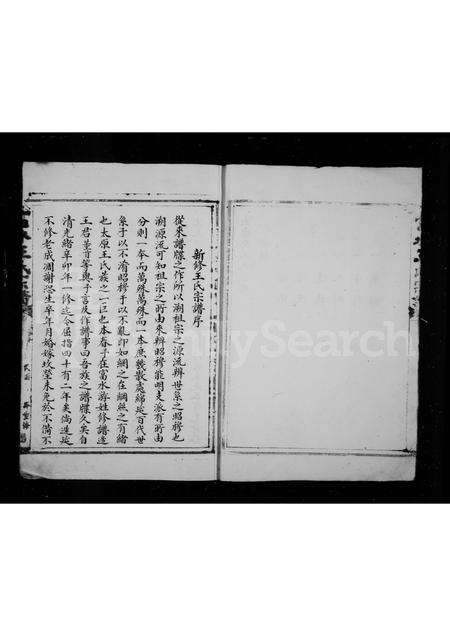 新修王氏宗譜序
從來譜牒之作所以溯祖宗之源流辨世系之昭穆也
溯源流可知祖宗之所由來辨昭穆能明支派有所由
分則一本而萬殊萬殊而一本庶幾散處綿延百代世
系于以不淆昭穆于以不亂卽如綱之在綱絲之有緒
也太原王氏族之一巨也本春予在富水游姓修譜適
王君董首等與予言及作譜事曰吾族之譜牒久矣自
清光緒辛卯年一修迄今屈指四十有二年矣倘遲延
不修老成凋謝恐生卒年月婚嫁坟塋未免於不備不
FamilySearch